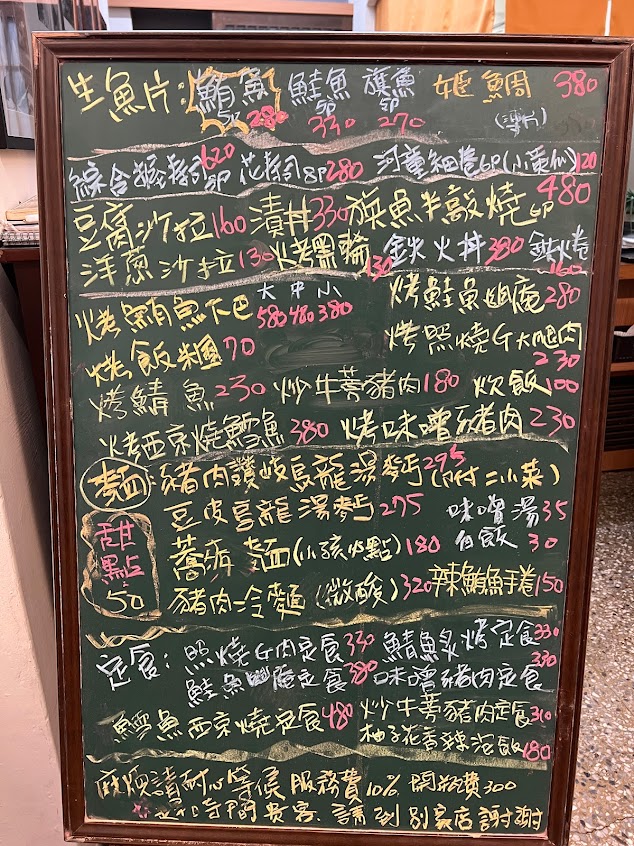 生魚片: 鮪魚5P 280 鮭魚5P 330 旗魚5P 270 姬鯛(薄片) 380
綜合握壽司620 8P 花壽司8P 280 河童細卷6P(小黃瓜) 120
豆腐沙拉160 漬丼330 旗魚半敲燒6P 480
洋蔥沙拉130 烤黑輪130 鉄火丼380 鉄火卷160
烤鮪魚下巴 大580 中480 小380 烤鮭魚幽庵280
烤飯糰70 烤照燒G大腿肉230
烤鯖魚230 炒牛蒡豬肉180 炊飯100
烤西京燒鱈魚380 烤味噌豬肉230
麵: 豬肉讚岐烏龍湯麥丐295(附二小菜)
豆皮烏龍湯麥丐275 味噌湯35
甜點50
蕎麥麵(小孩炒點)180 白飯30
豬肉冷麵(微酸)320 辣鮪魚手卷150
定食: 照燒G肉定食330 鯖魚炙烤定食330
鮭魚幽庵定食380 味噌豬肉定食330
鱈魚西京燒定食480 炒牛蒡豬肉定食310
柚子花香辣泡飯180
麻煩請耐心等候 服務費10% 開瓶費300
時間 貴客 請到別家店謝謝